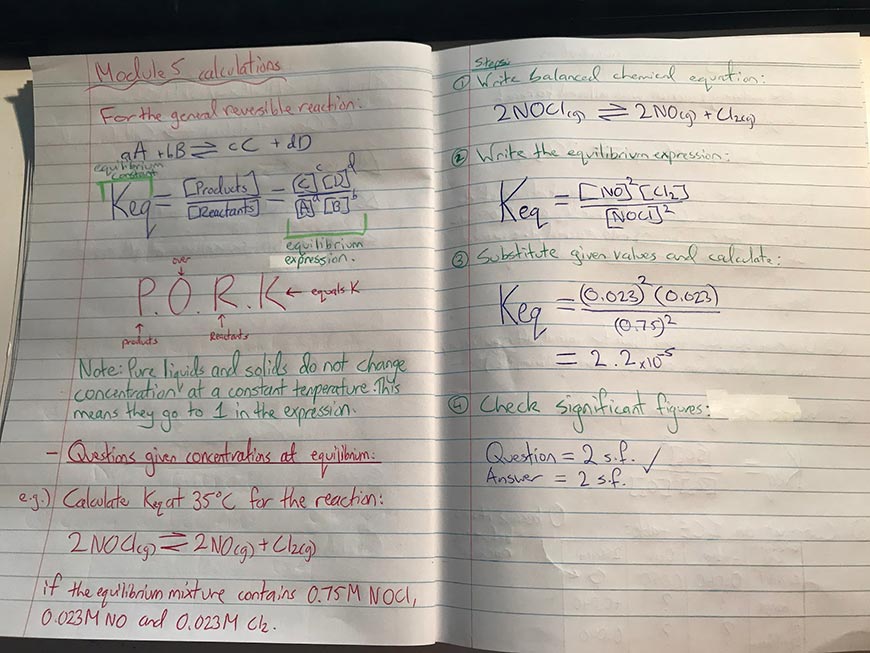 Module 5 calculations
For the general reversible reaction:
aA + bB ⇌ cC + dD
equilibrium
constant
Keq = [Products]/[Reactants] = [C]^c [D]^d/[A]^a [B]^b
equilibrium
expression.
over
P.O.R.K ← equals K
products
Reactants
Note: Pure liquids and solids do not change
concentration at a constant temperature. This
means they go to 1 in the expression.
- Questions given concentrations at equilibrium:
e.g.) Calculate Keq at 35°C for the reaction:
2NOCl(g) ⇌ 2NO(g) + Cl2(g)
if the equilibrium mixture contains 0.75M NOCl,
0.023M NO and 0.023M Cl2.
Steps:
① Write balanced chemical equation:
2NOCl(g) ⇌ 2NO(g) + Cl2(g)
② Write the equilibrium expression:
Keq = [NO]²[Cl2]/[NOCl]²
③ Substitute given values and calculate:
Keq = (0.023)²(0.023)/(0.75)²
= 2.2×10⁻⁵
④ Check significant figures:
Question = 2 s.f. ✓
Answer = 2 s.f.